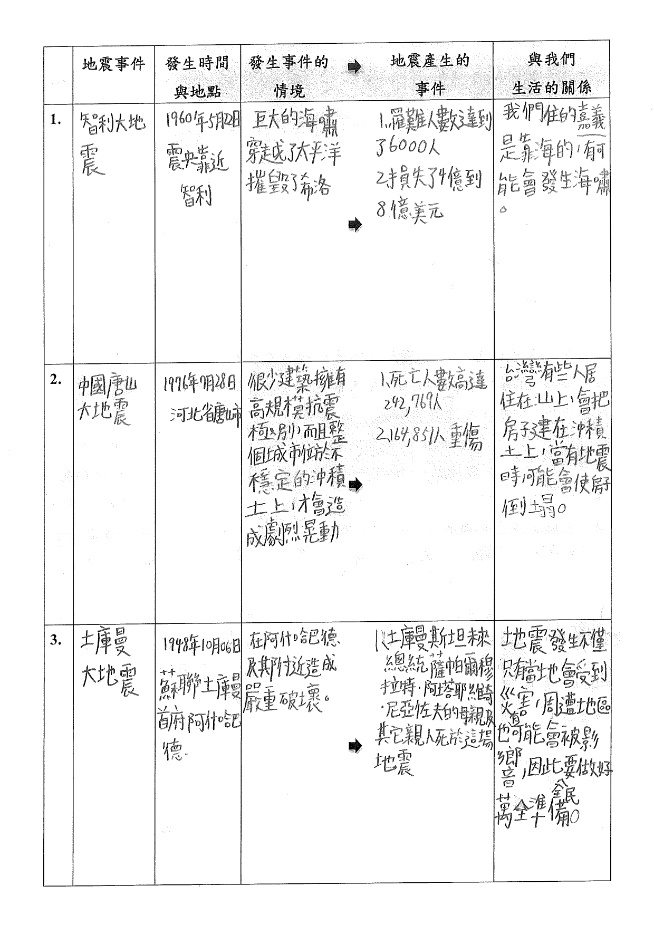 地震事件
發生時間
與地點
發生事件的
情境
地震產生的
事件
與我們
生活的關係
1.
智利大地
震
1960年5月2日
震央靠近
智利
巨大的海嘯
穿越了太平洋
摧毀了希洛
1.罹難人數達到
了6000人
2.損失了4億到
8億美元
我們住的嘉義
是靠海的,有可
能會發生海嘯
。
2.
中國唐山
大地震
1976年7月28日
河北省唐山市
很少建築擁有
高規模抗震
極別,而且整
個城市位於不
穩定的沖積
土上,才會造
成劇烈晃動
1.死亡人數高達
242,769人
2.164,851人重傷
台灣有些人居
住在山上,會把
房子建在沖積
土上,當有地震
時可能會使房
倒塌。
3.
土庫曼
大地震
1948年10月06日
蘇聯土庫曼
首府阿什哈巴
德.
在阿什哈巴德
及其附近造成
嚴重破壞。
1.土庫曼斯坦未來
總統薩帕爾穆
拉特·阿塔耶維奇
·尼亞佐夫的母親及
其它親人死於這場
地震
地震發生不僅
只有當地會受到
災害,周遭地區
也有可能會被影
響,因此要做好
萬全準備。
全民